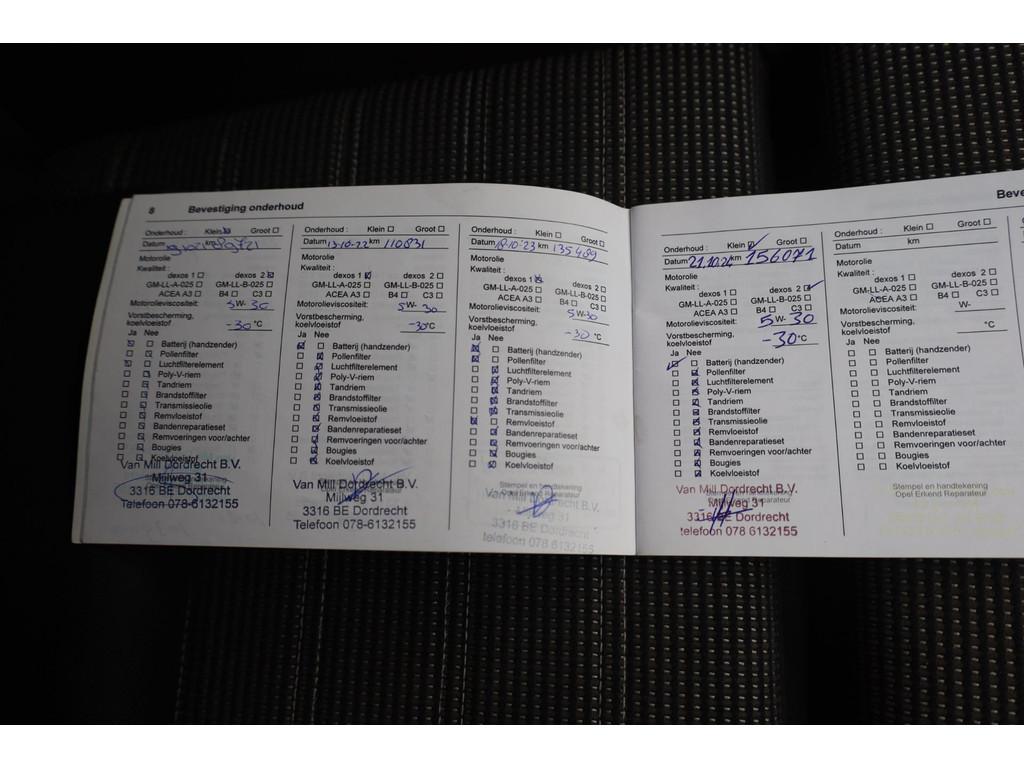 8 Bevestiging onderhoud
Onderhoud : Klein Groot
Datum km
Motorolie
Kwaliteit :
dexos 1 dexos 2
GM-LL-A-025 GM-LL-B-025
ACEA A3 B4 C3
Motorolieviscositeit: 5W-30
Vorstbescherming,
koelvloeistof -30 °C
Ja Nee
Batterij (handzender)
Pollenfilter
Luchtfilterelement
Poly-V-riem
Tandriem
Brandstoffilter
Transmissieolie
Remvloeistof
Bandenreparatieset
Remvoeringen voor/achter
Bougies
Koelvloeistof
Van Mill Dordrecht B.V.
Mijlweg 31
3316 BE Dordrecht
Telefoon 078-6132155
Onderhoud : Klein Groot
Datum 13-10-22 km 110831
Motorolie
Kwaliteit :
dexos 1 dexos 2
GM-LL-A-025 GM-LL-B-025
ACEA A3 B4 C3
Motorolieviscositeit: 5W-30
Vorstbescherming,
koelvloeistof -30 °C
Ja Nee
Batterij (handzender)
Pollenfilter
Luchtfilterelement
Poly-V-riem
Tandriem
Brandstoffilter
Transmissieolie
Remvloeistof
Bandenreparatieset
Remvoeringen voor/achter
Bougies
Koelvloeistof
Van Mill Dordrecht B.V.
Mijlweg 31
3316 BE Dordrecht
Telefoon 078-6132155
Onderhoud : Klein Groot
Datum 18-10-23 km 135489
Motorolie
Kwaliteit :
dexos 1 dexos 2
GM-LL-A-025 GM-LL-B-025
ACEA A3 B4 C3
Motorolieviscositeit: 5W-30
Vorstbescherming,
koelvloeistof -30 °C
Ja Nee
Batterij (handzender)
Pollenfilter
Luchtfilterelement
Poly-V-riem
Tandriem
Brandstoffilter
Transmissieolie
Remvloeistof
Bandenreparatieset
Remvoeringen voor/achter
Bougies
Koelvloeistof
Stempel en handtekening
Opel Erkend Reparateur
Van Mill Dordrecht B.V.
Mijlweg 31
3316 BE Dordrecht
telefoon 078 6132155
Beve
Onderhoud : Klein Groot
Datum 21.10.24 km 156071
Motorolie
Kwaliteit :
dexos 1 dexos 2
GM-LL-A-025 GM-LL-B-025
ACEA A3 B4 C3
Motorolieviscositeit: 5W-30
Vorstbescherming,
koelvloeistof -30°C
Ja Nee
Batterij (handzender)
Pollenfilter
Luchtfilterelement
Poly-V-riem
Tandriem
Brandstoffilter
Transmissieolie
Remvloeistof
Bandenreparatieset
Remvoeringen voor/achter
Bougies
Koelvloeistof
Van Mill Dordrecht B.V.
Mijlweg 31
3316 BE Dordrecht
telefoon 078 6132155
Onderhoud : Klein Groot
Datum km
Motorolie
Kwaliteit :
dexos 1 dexos 2
GM-LL-A-025 GM-LL-B-025
ACEA A3 B4 C3
Motorolieviscositeit: W-
Vorstbescherming,
koelvloeistof °C
Ja Nee
Batterij (handzender)
Pollenfilter
Luchtfilterelement
Poly-V-riem
Tandriem
Brandstoffilter
Transmissieolie
Remvloeistof
Bandenreparatieset
Remvoeringen voor/achter
Bougies
Koelvloeistof
Stempel en handtekening
Opel Erkend Reparateur